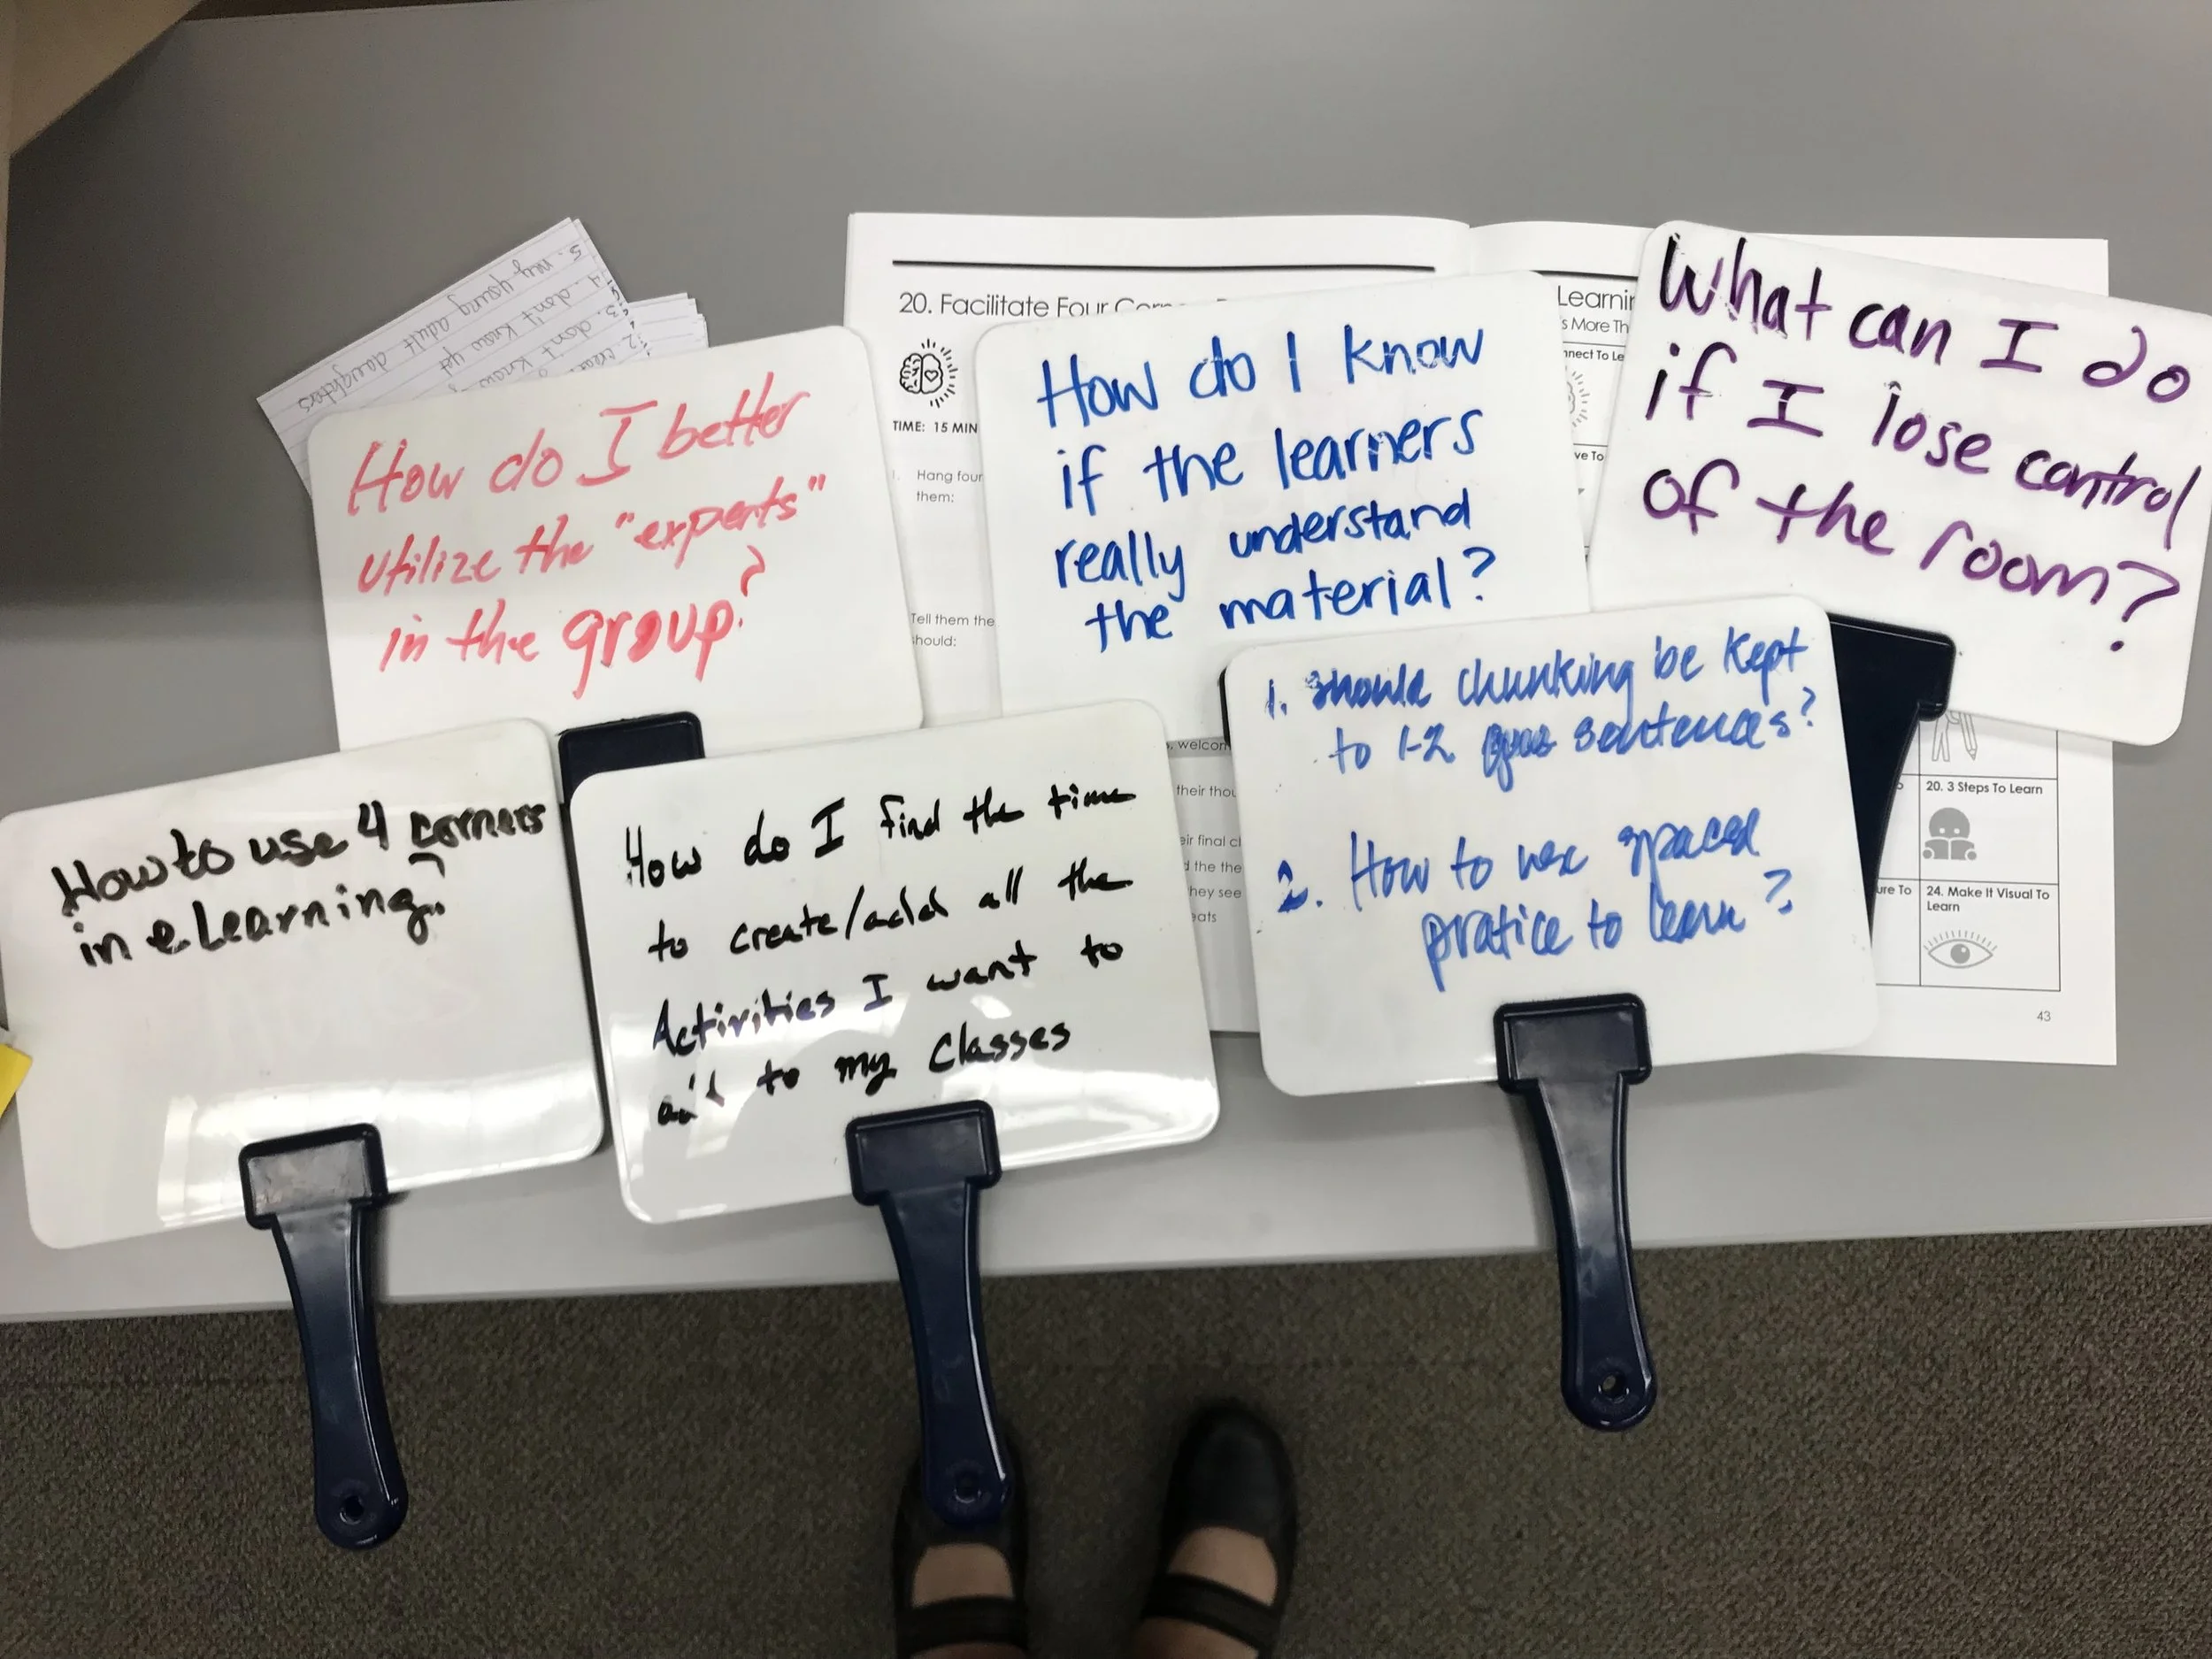 5. my young adult daughters
4. don't know yet
3. don't know
20. Facilitate Four
TIME: 15 MIN
Hang four
them:
Tell them the
should:
welcom
their thou
eir final cl
d the the
hey see
eats
Learnin
s More Th
nnect To Le
ve To
20. 3 Steps To Learn
ure To
24. Make It Visual To
Learn
43
How do I better
utilize the "experts"
in the group?
How do I know
if the learners
really understand
the material?
What can I do
if I lose control
of the room?
How to use 4 corners
in eLearning?
How do I find the time
to create/add all the
Activities I want to
add to my classes
1. Should chunking be kept
to 1-2 sentences?
2. How to use spaced
pratice to learn?